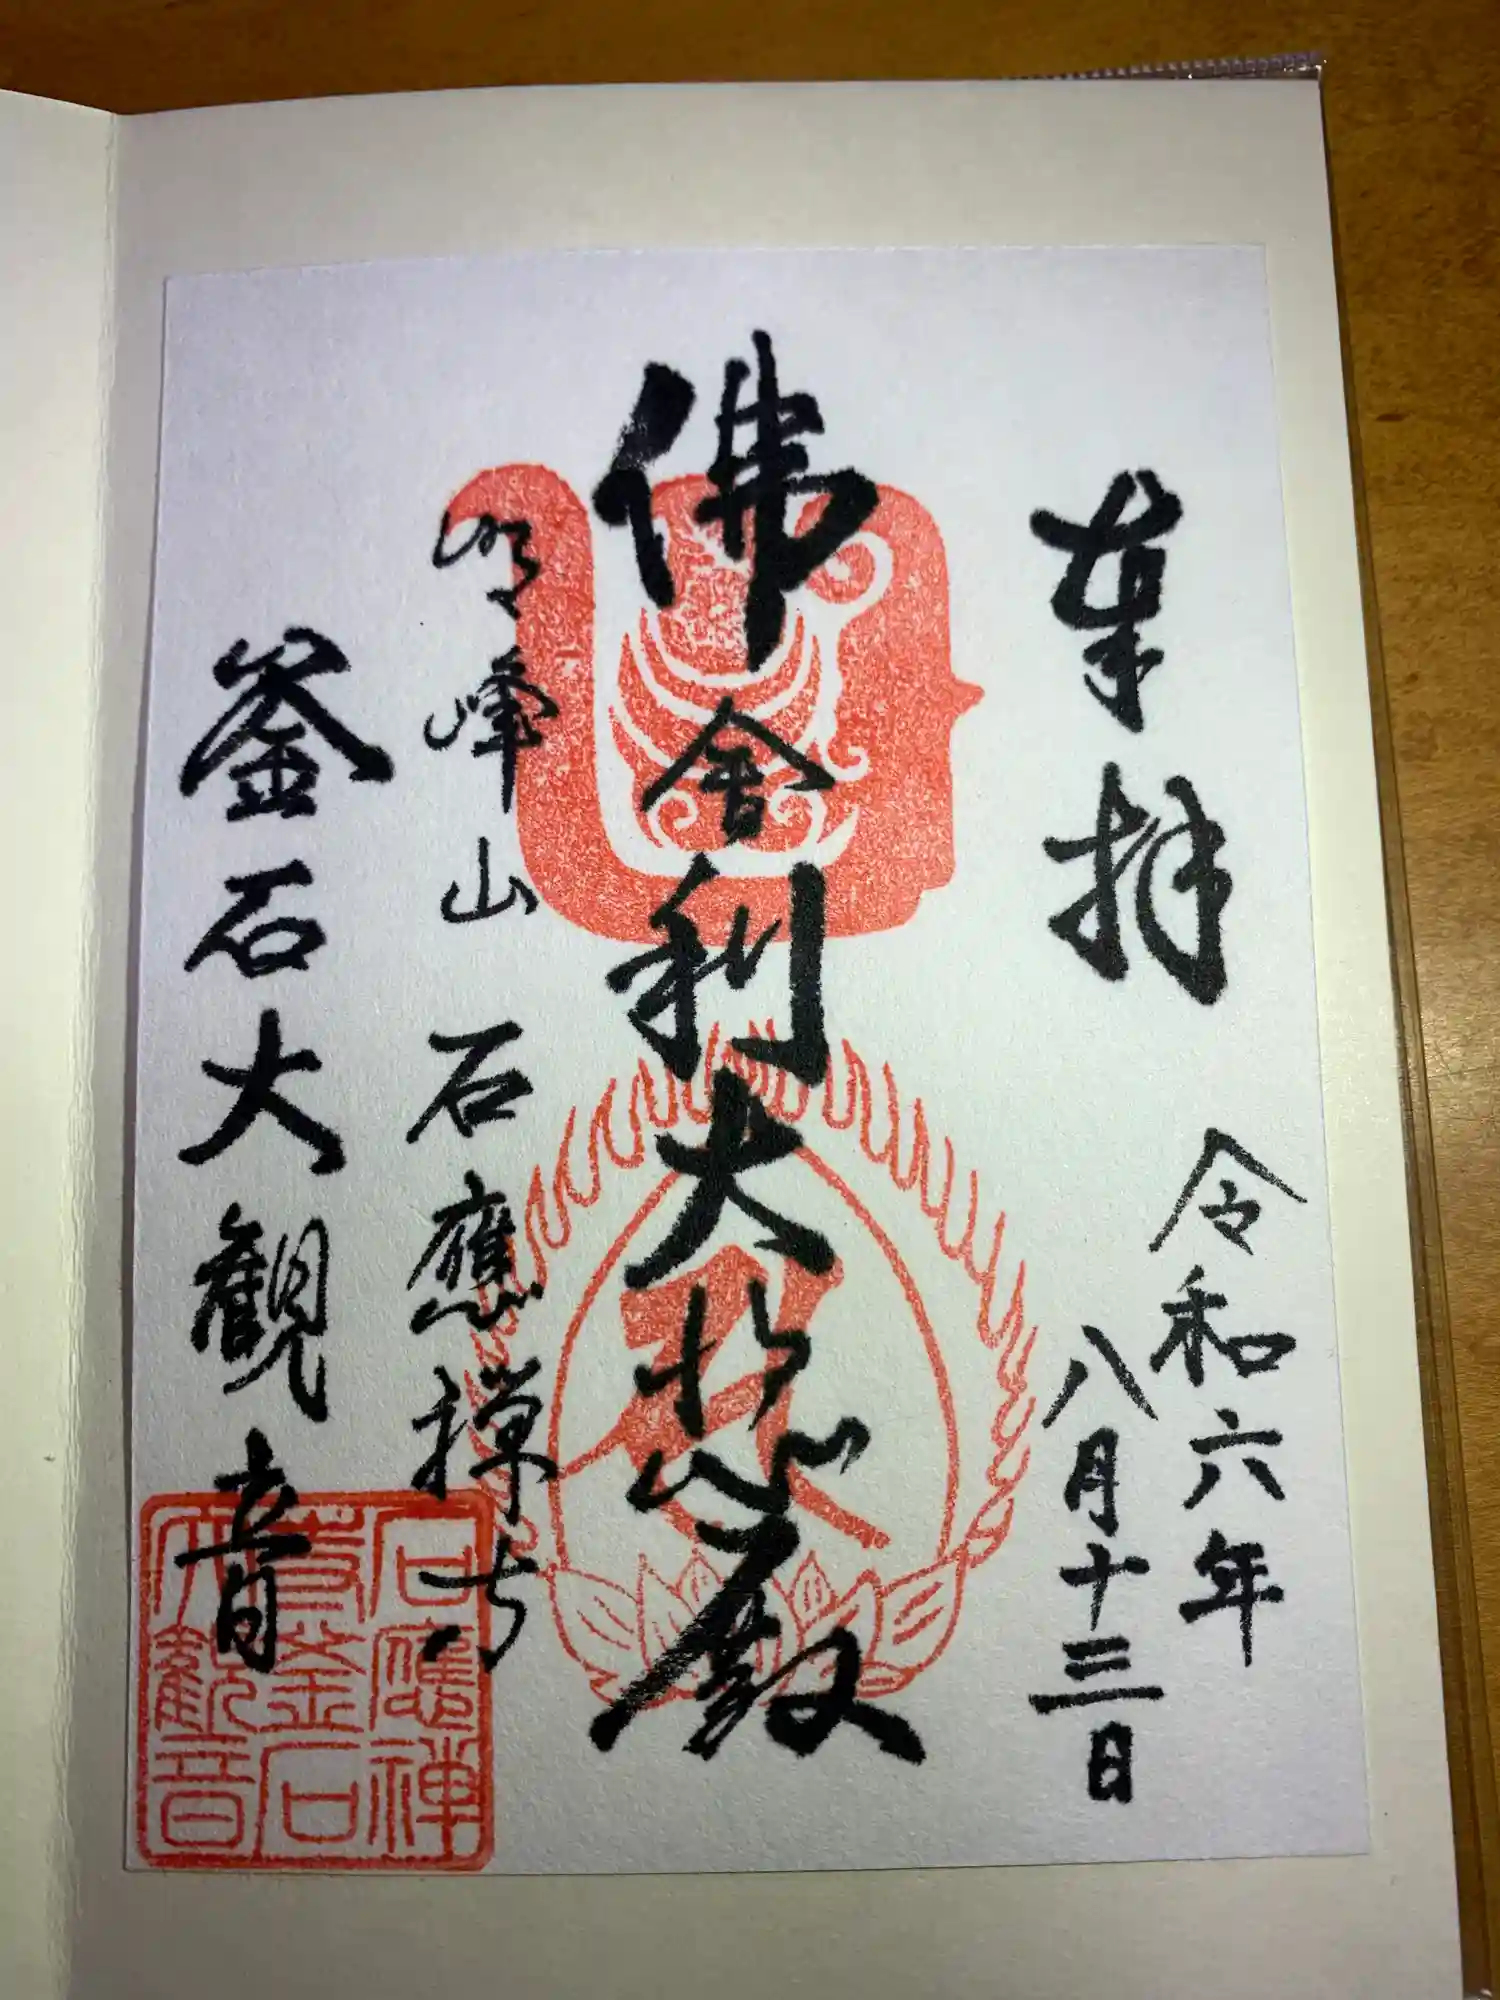 奉拝
令和六年
八月十三日
佛舎利大悲殿
明峰山 石應禅寺
釜石大観音
石應禅
寺釜石
大観音